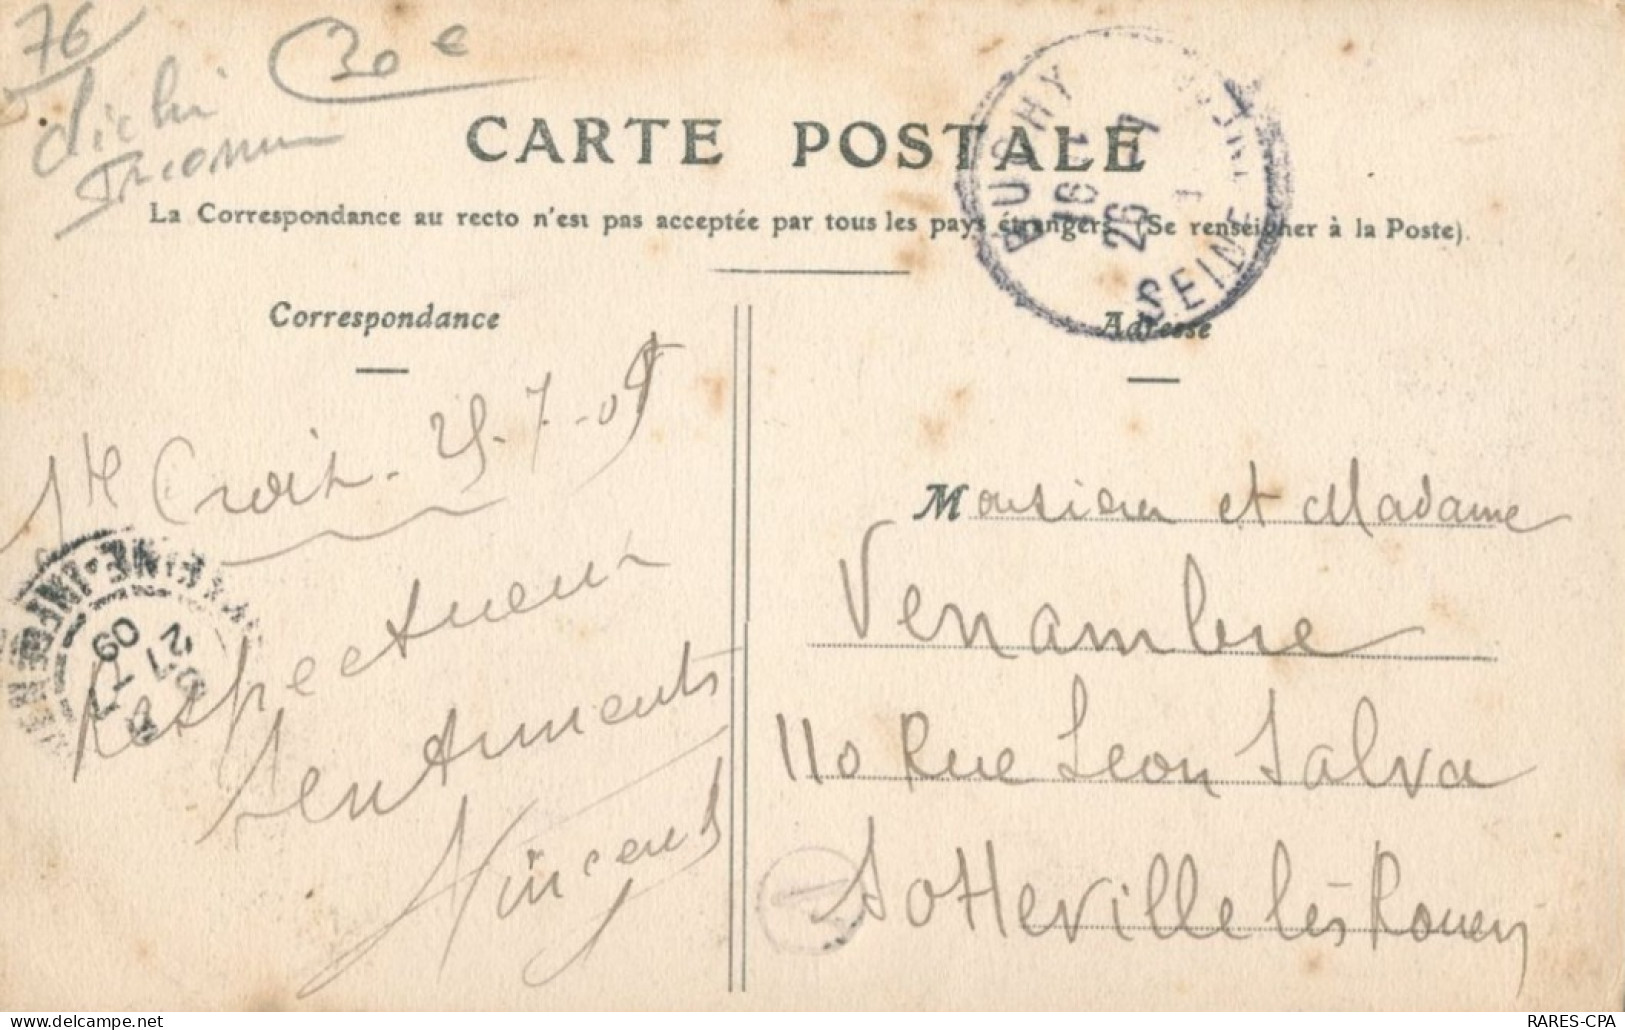 76
30 €
CARTE POSTALE
La Correspondance au recto n'est pas acceptée par tous les pays étrangers. (Se renseigner à la Poste).
BUCHY
16
26 -7
SEINE INF
Correspondance
Adresse
Ste Croix - 25-7-09
Respectueux
Sentiments
Vincent
Monsieur et Madame
Venambre
110 Rue Leon Salva
Sotteville lès Rouen
NE-INFRE
27
09
RARES-CPA